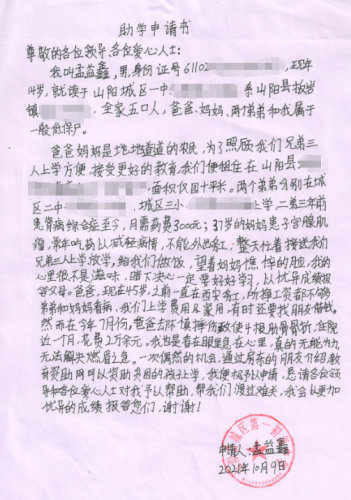 助学申请书
尊敬的各位领导、各位爱心人士:
我叫孟益鑫,男,身份证号61102 现年
14岁,就读于山阳城区一中 系山阳县板岩
镇 全家五口人,爸爸、妈妈、两个弟弟和我属于
一般低保户。
爸爸妈妈是地地道道的农民,为了照顾我们兄弟三
人上学方便,接受更好的教育,我们便租住在山阳县
面积仅四十平米。两个弟弟分别在城
区二中 、城区三小 上学,二弟三年前
患肾病综合症至今,月需药费3000元;37岁的妈妈患子宫腺肌
瘤,常年吃药以减轻病情,不能外出务工,整天忙着接送我们
兄弟三人上学放学,给我们做饭,望着妈妈憔悴的脸,我的
心里很不是滋味,暗下决心一定要好好学习,以优异成绩报
答父母。爸爸,现年45岁,之前一直在西安务工,所挣工资都不够
弟弟和妈妈看病,我们上学费用及家用,有时还要找朋友借钱。
然而在今年7月份,爸爸去 摔伤致使4根肋骨骨折,住院
近一个月,花费2万余元。我也是看在眼里急在心里,真的无能为力,
无法解决燃眉之急。一次偶然的机会,通过房东的朋友介绍教
育资助网可以资助贫困的孩子上学,我便给予以申请,恳请各位领
导和各位爱心人士对我予以帮助,帮我们渡过难关,我会以更加
优异的成绩报答您们,谢谢!
申请人:孟益鑫
2021年10月9日
城区第一初